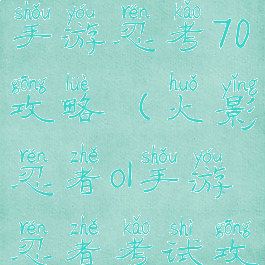 shǒu yóu rěn kǎo
手游忍考70
gōng lüè huǒ yǐng
攻略(火影
rěn zhě shǒu yóu
忍者ol手游
rěn zhě kǎo shì gōng
忍者考试攻